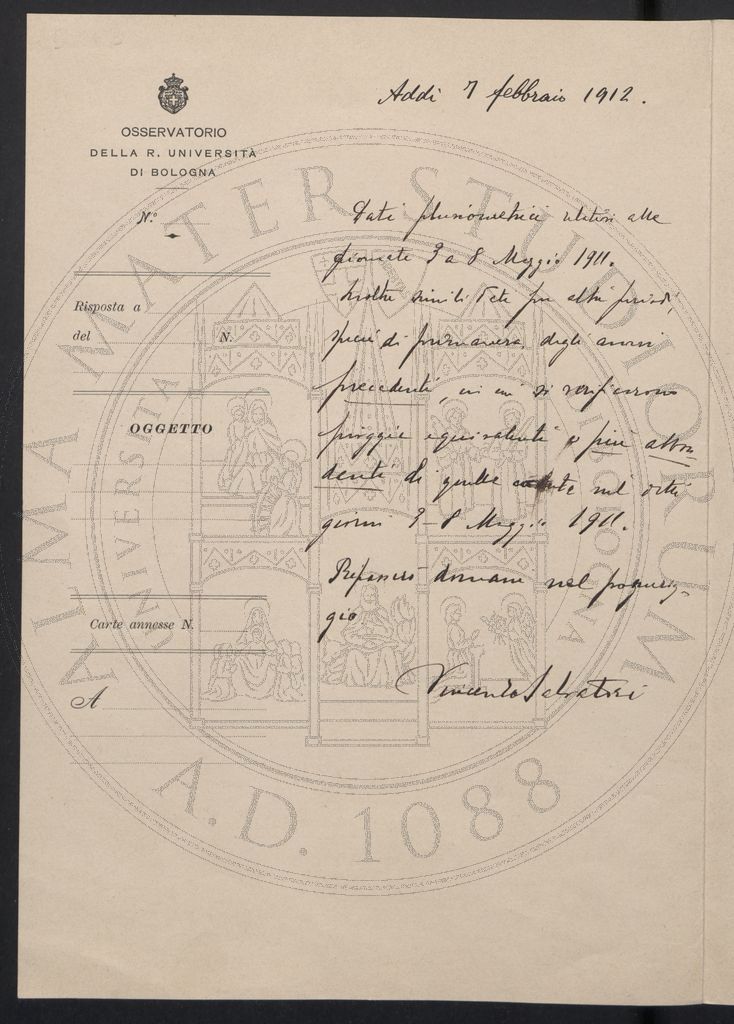 Addì 7 febbraio 1912.
OSSERVATORIO
DELLA R. UNIVERSITÀ
DI BOLOGNA
N.º
Dati pluviometrici relativi alle
giornate 3 a 8 Maggio 1911.
Inoltre simili dati per altri periodi,
specie di primavera, degli anni
precedenti, in cui si verificarono
pioggie equivalenti o più abbon
danti di quelle cadute nei detti
giorni 3-8 Maggio 1911.
Ripasserò domani nel pomerig-
gio.
Vincenzo Salvatori
Risposta a
del N.
OGGETTO
Carte annesse N.
A
ALMA MATER STUDIORUM
A.D. 1088
UNIVERSITÀ DI BOLOGNA